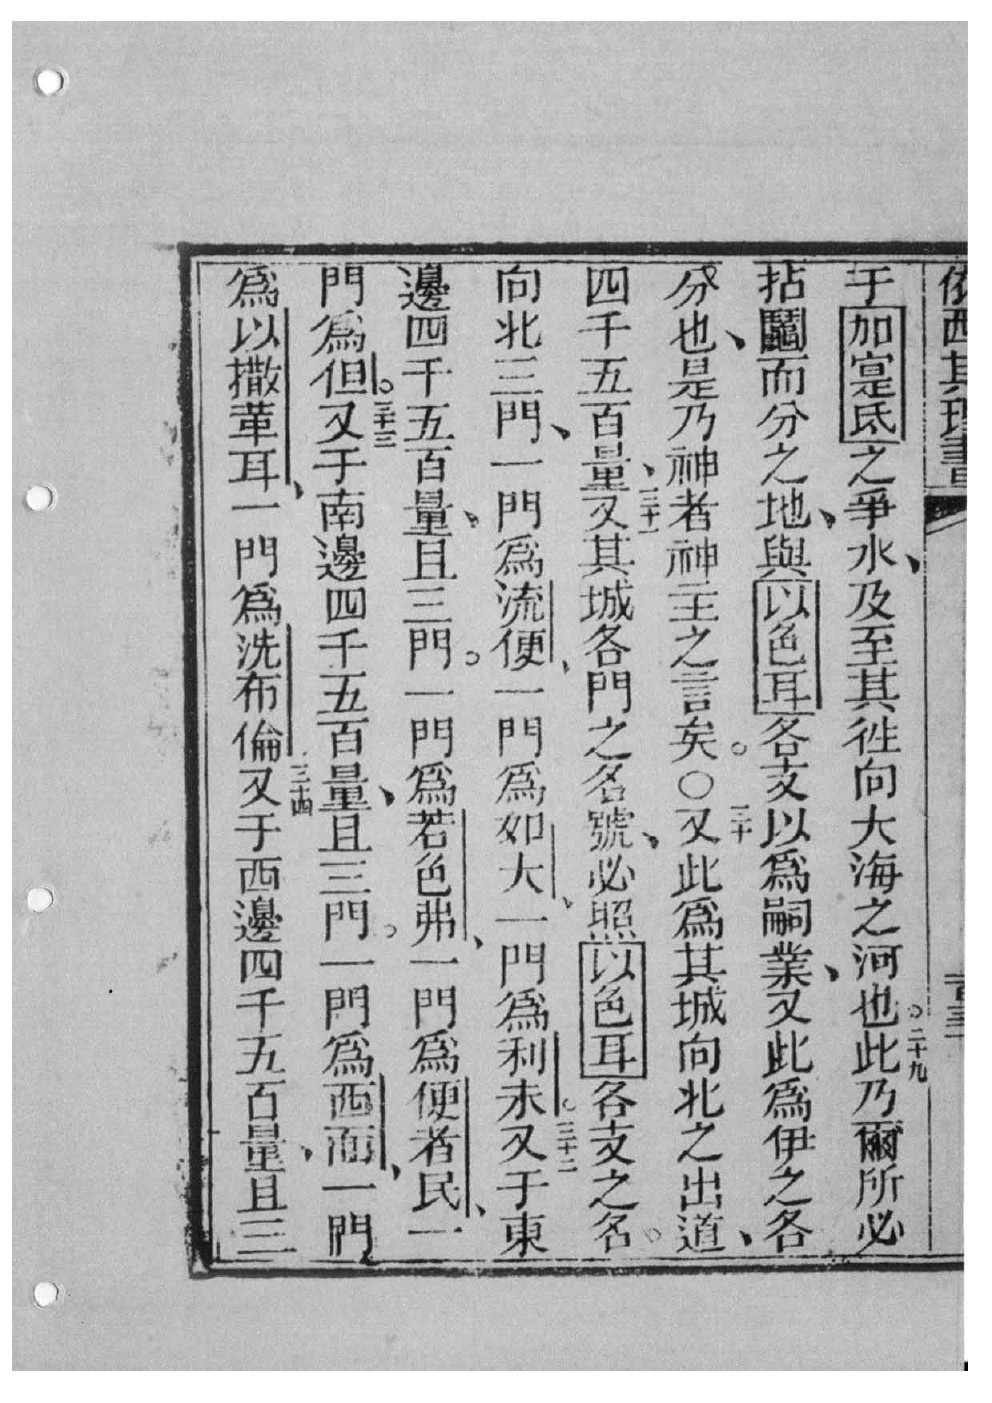 依西其理書
于加寔氐之爭水、及至其徃向大海之河也。二十九此乃爾所必
拈鬮而分之地、與以色耳各支以為嗣業、又此為伊之各
分也、是乃神者神主之言矣。○三十又此為其城向北之出道、
四千五百量、三十一又其城各門之名號、必照以色耳各支之名。
向北三門、一門爲流便、一門爲如大、一門爲利未。三十二又于東
邊四千五百量、且三門。一門爲若色弗、一門爲便者民、一
門爲但。三十三又于南邊四千五百量、且三門。一門爲西面、一門
爲以撒革耳、一門爲洗布倫三十四又于西邊四千五百量、且三